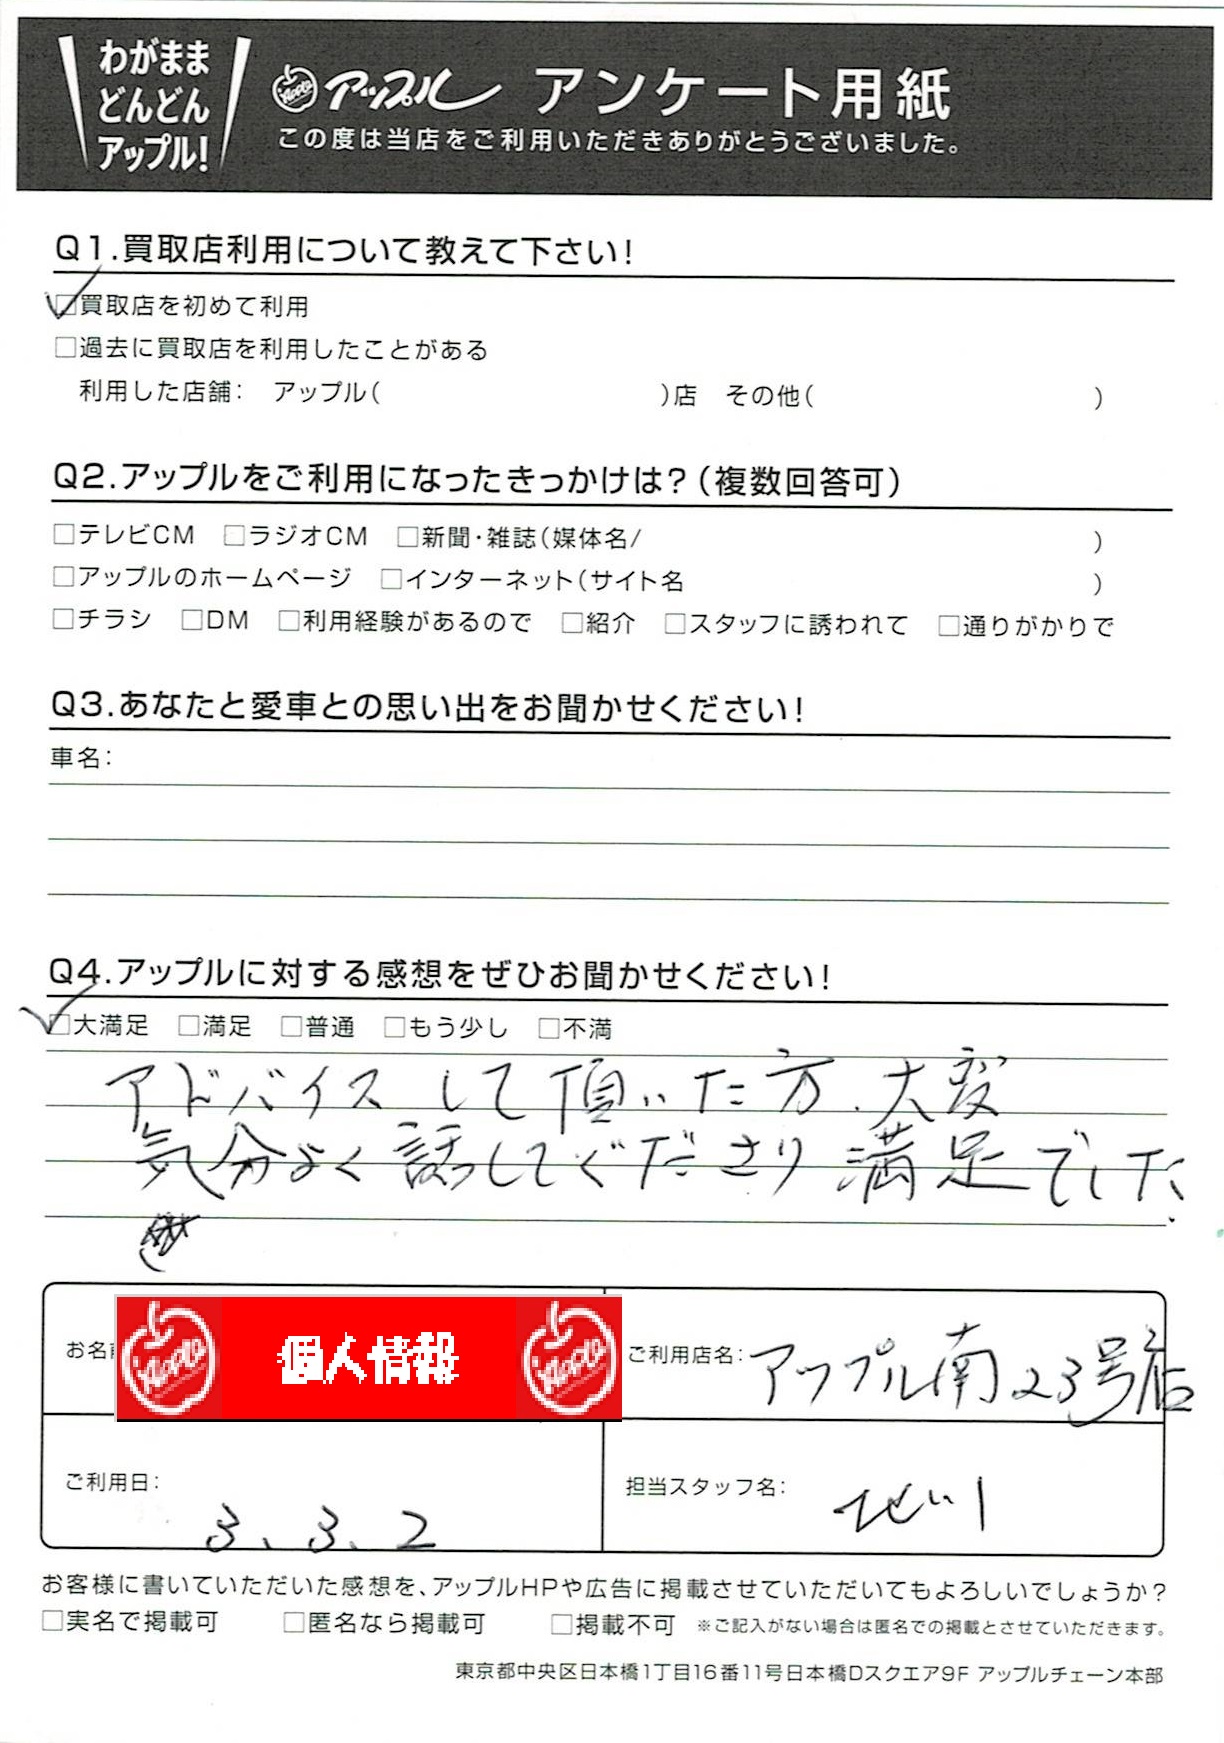 わがまま
どんどん
アップル!
Apple アップル アンケート用紙
この度は当店をご利用いただきありがとうございました。
Q1.買取店利用について教えて下さい!
☑買取店を初めて利用
□過去に買取店を利用したことがある
利用した店舗: アップル( )店 その他( )
Q2.アップルをご利用になったきっかけは?(複数回答可)
□テレビCM □ラジオCM □新聞・雑誌(媒体名/ )
□アップルのホームページ □インターネット(サイト名 )
□チラシ □DM □利用経験があるので □紹介 □スタッフに誘われて □通りがかりで
Q3.あなたと愛車との思い出をお聞かせください!
車名:
Q4.アップルに対する感想をぜひお聞かせください!
☑大満足 □満足 □普通 □もう少し □不満
アドバイスして頂いた方、大変
気分よく話してくださり満足でした.
お名前 Apple 個人情報 Apple
ご利用店名: アップル南23号店
ご利用日: 3、3、2
担当スタッフ名:
お客様に書いていただいた感想を、アップルHPや広告に掲載させていただいてもよろしいでしょうか?
□実名で掲載可 □匿名なら掲載可 □掲載不可 ※ご記入がない場合は匿名での掲載とさせていただきます。
東京都中央区日本橋1丁目16番11号日本橋Dスクエア9F アップルチェーン本部